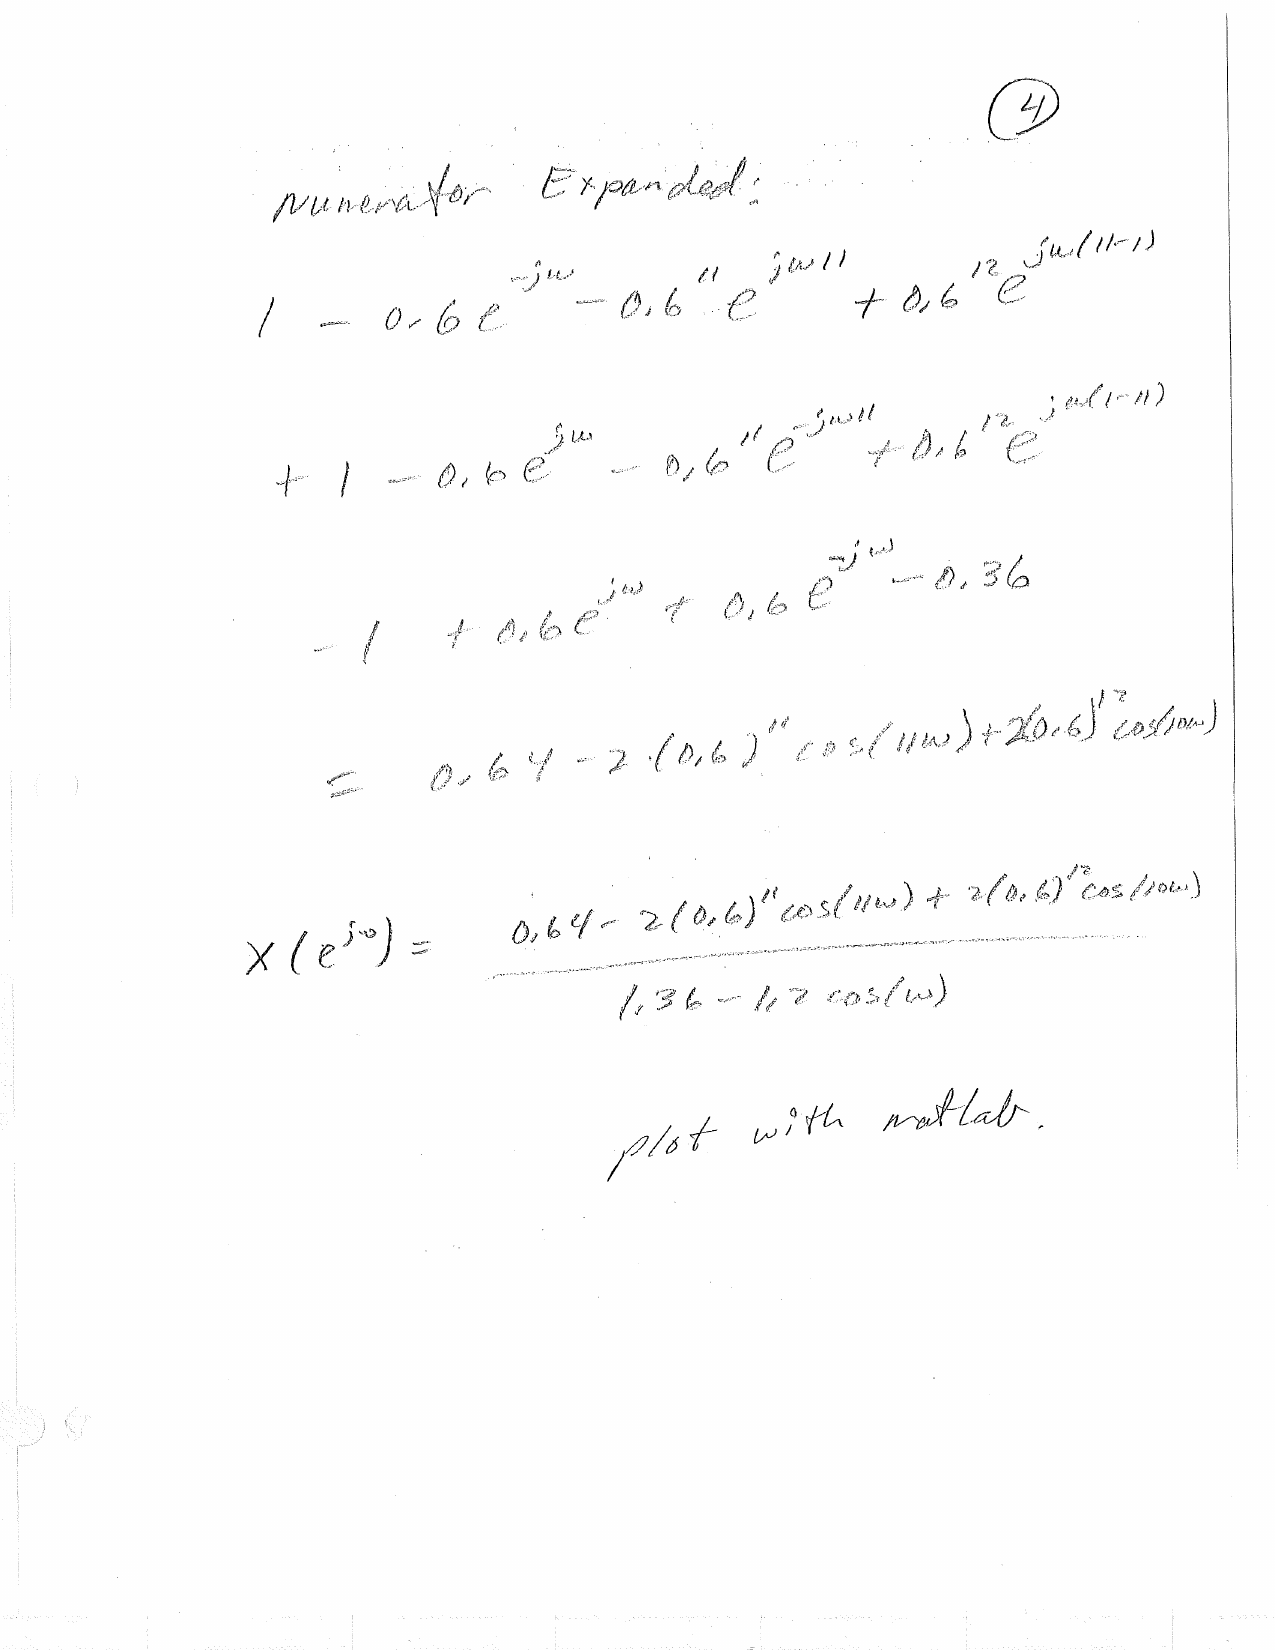 4
Numerator Expanded:
1 - 0.6 e^{-jω} - 0.6^{11} e^{jω11} + 0.6^{12} e^{jω(11-1)}
+ 1 - 0.6 e^{jω} - 0.6^{11} e^{-jω11} + 0.6^{12} e^{jω(1-11)}
- 1 + 0.6 e^{jω} + 0.6 e^{-jω} - 0.36
= 0.64 - 2·(0.6)^{11} cos(11ω) + 2(0.6)^{12} cos(10ω)
0.64 - 2(0.6)^{11} cos(11ω) + 2(0.6)^{12} cos(10ω)
X(e^{jω}) =
1.36 - 1.2 cos(ω)
plot with matlab.